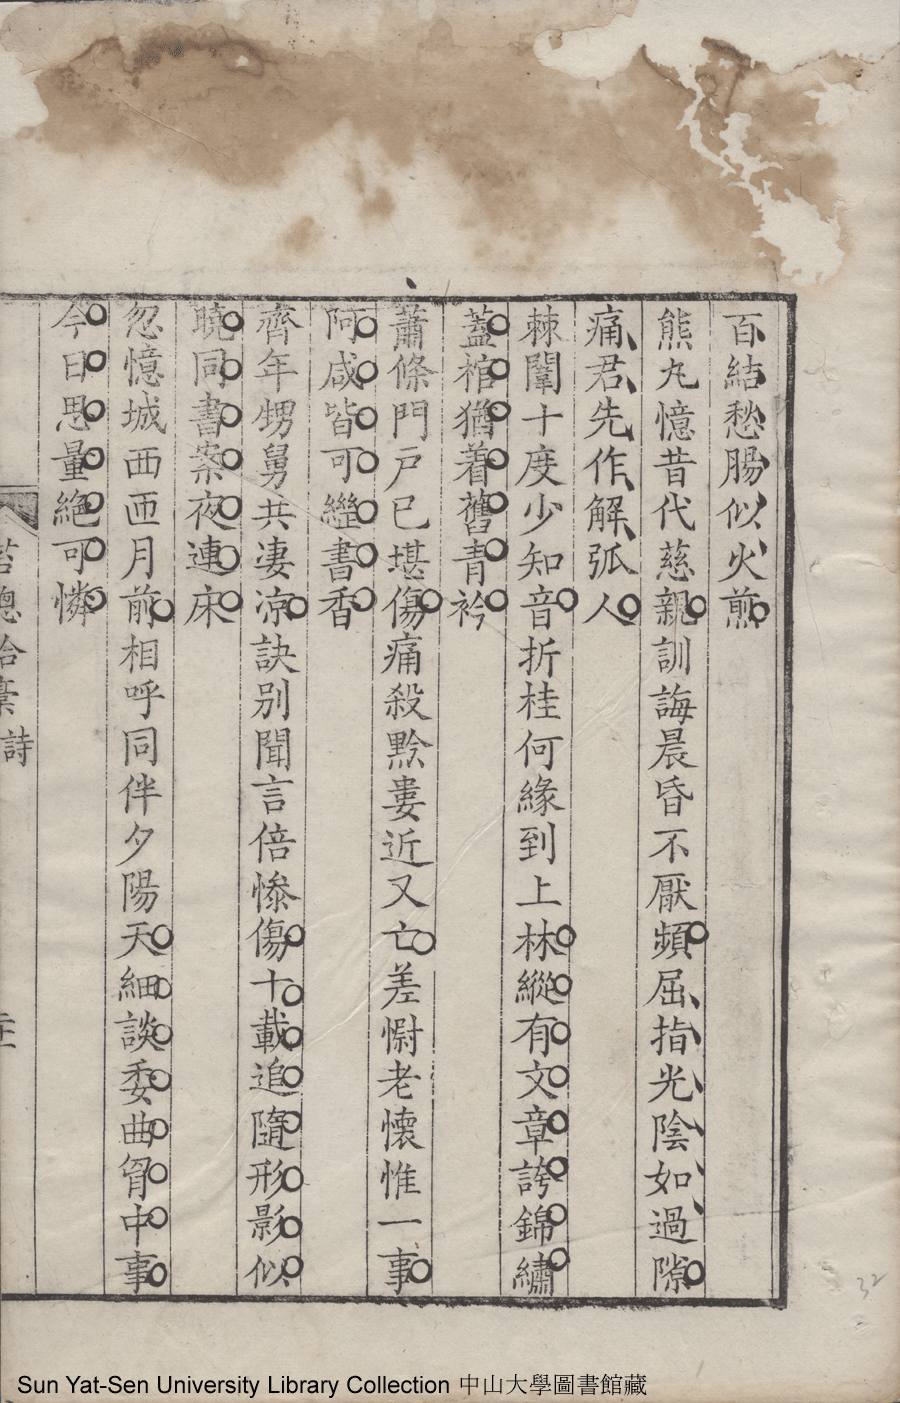 百結愁腸似火煎
熊丸憶昔代慈親訓誨晨昏不厭頻屈指光陰如過隙
痛君先作解弧人
棘闈十度少知音折桂何緣到上林縱有文章誇錦繡
蓋棺猶着舊青衿
蕭條門戶已堪傷痛殺黔婁近又亡差慰老懷惟一事
阿咸皆可繼書香
齊年甥舅共凄凉訣別聞言倍慘傷十載追隨形影似
曉同書案夜連床
忽憶城西面月前相呼同伴夕陽天細談委曲胷中事
今日思量絶可憐
詩
32
Sun Yat-Sen University Library Collection 中山大學圖書館藏